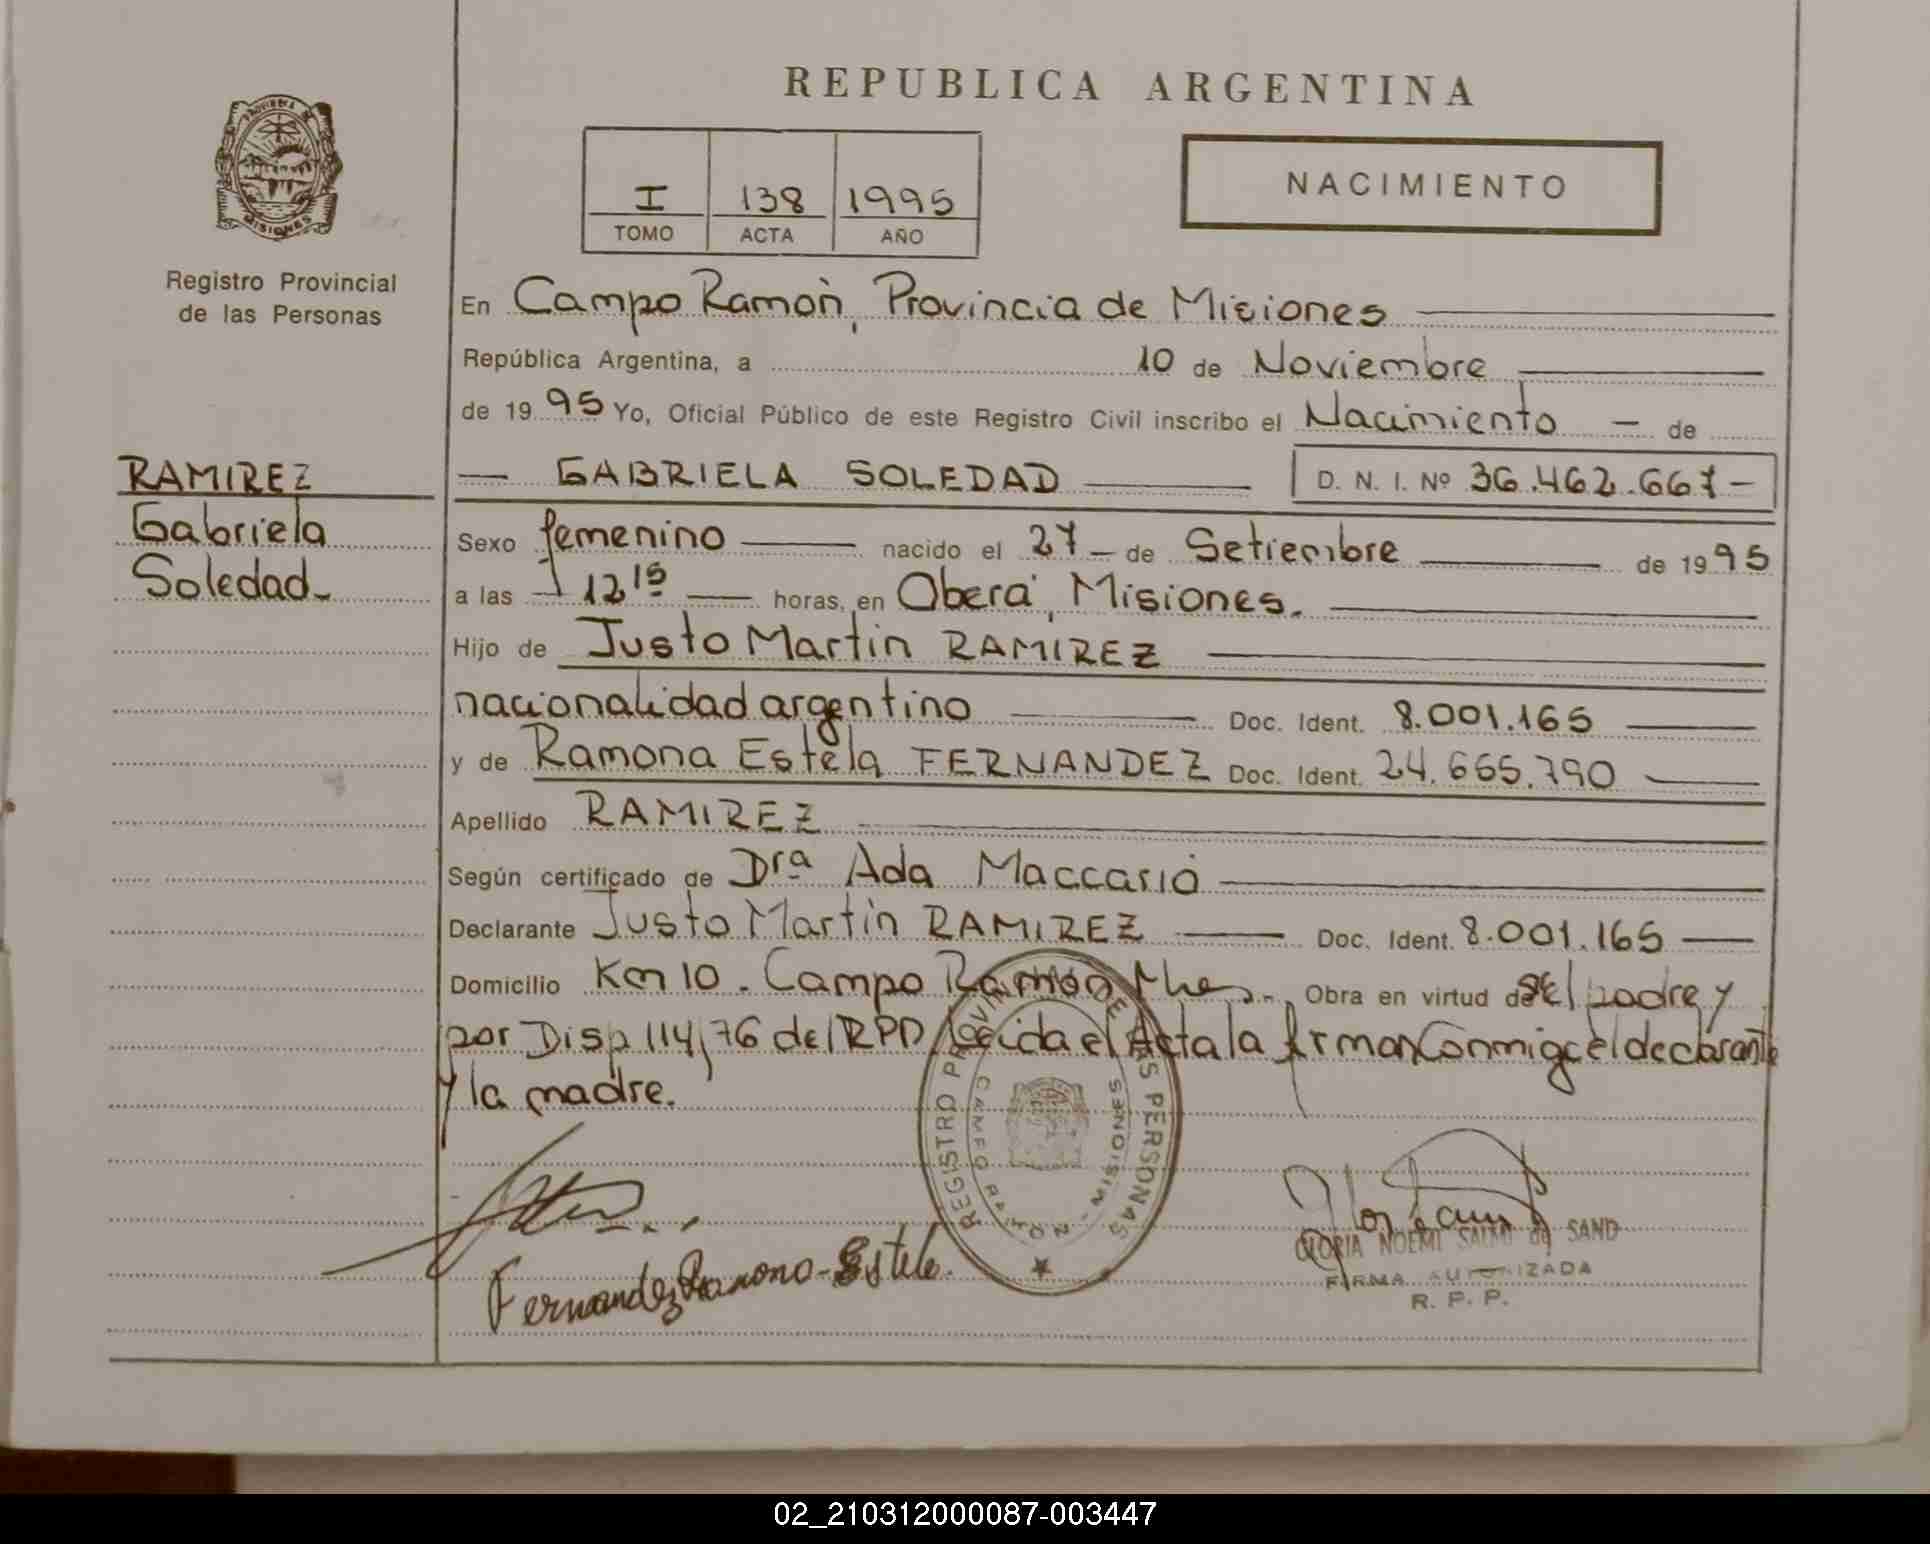 REPUBLICA ARGENTINA
PROVINCIA
MISIONES
Registro Provincial
de las Personas
I 138 1995
TOMO ACTA AÑO
NACIMIENTO
En Campo Ramón, Provincia de Misiones
República Argentina, a 10 de Noviembre
de 1995 Yo, Oficial Público de este Registro Civil inscribo el Nacimiento - de
RAMIREZ
Gabriela
Soledad-
GABRIELA SOLEDAD D. N. I. Nº 36.462.667-
Sexo femenino nacido el 27- de Setiembre de 1995
a las 12 15 horas, en Oberá, Misiones.
Hijo de Justo Martin RAMIREZ
nacionalidad argentino Doc. Ident. 8.001.165
y de Ramona Estela FERNANDEZ Doc. Ident. 24.665.790
Apellido RAMIREZ
Según certificado de Drª Ada Maccario
Declarante Justo Martín RAMIREZ Doc. Ident. 8.001.165
Domicilio Km 10. Campo Ramón Mnes. Obra en virtud de del padre y
por Disp 114/76 del RPP Leida el Acta la firman Conmigo el declarante
y la madre.
REGISTRO PROVINCIAL DE LAS PERSONAS
CAMPO RAMON - MISIONES
Fernandez Ramona Estela.
GLORIA NOEMI SALMI de SAND
FIRMA AUTORIZADA
R. P. P.
02_210312000087-003447